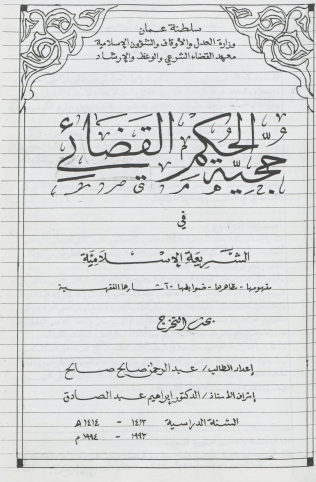 سلطنة عمان
وزارة العدل والأوقاف والشؤون الإسلامية
معهد القضاء الشرعي والوعظ والإرشاد
حجية الحكم القضائي
في
الشريعة الإسلامية
مفهومها - ظاهرها - ضوابطها - آثارها الفقهية
بحث التخرج
إعداد الطالب / عبد الرحمن صالح صالح
إشراف الأستاذ / الدكتور إبراهيم عبد الصادق
السنة الدراسية ١٤١٣ - ١٤١٤ هـ
١٩٩٣ - ١٩٩٤ م